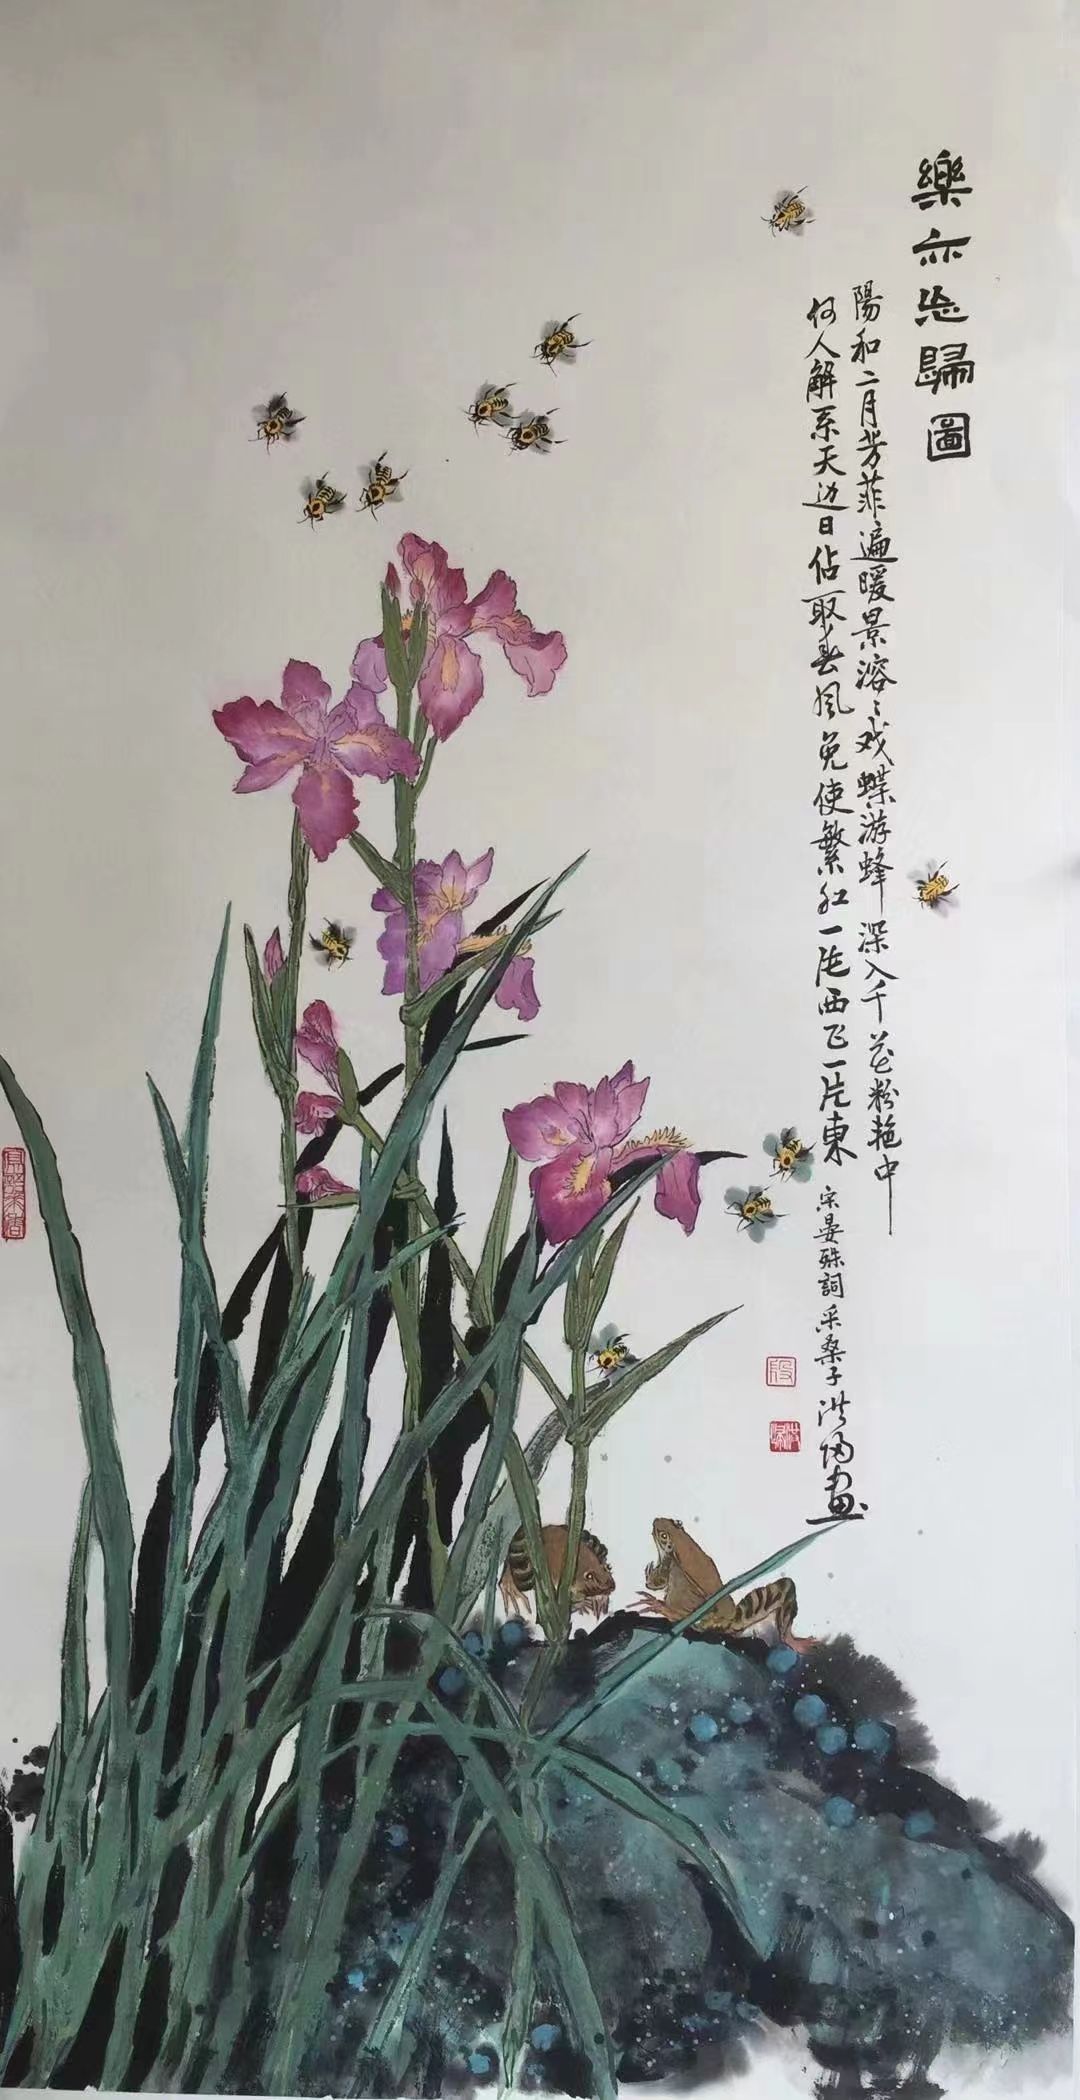 樂亦忘歸圖
陽和二月芳菲遍暖景溶〻戏蝶游蜂深入千花粉艳中
何人解系天边日佔取春风免使繁红一片西飞一片東
宋晏殊詞采桑子洪归画
段